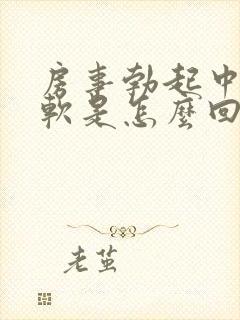 房事勃起中
軟是怎麼回
老茧